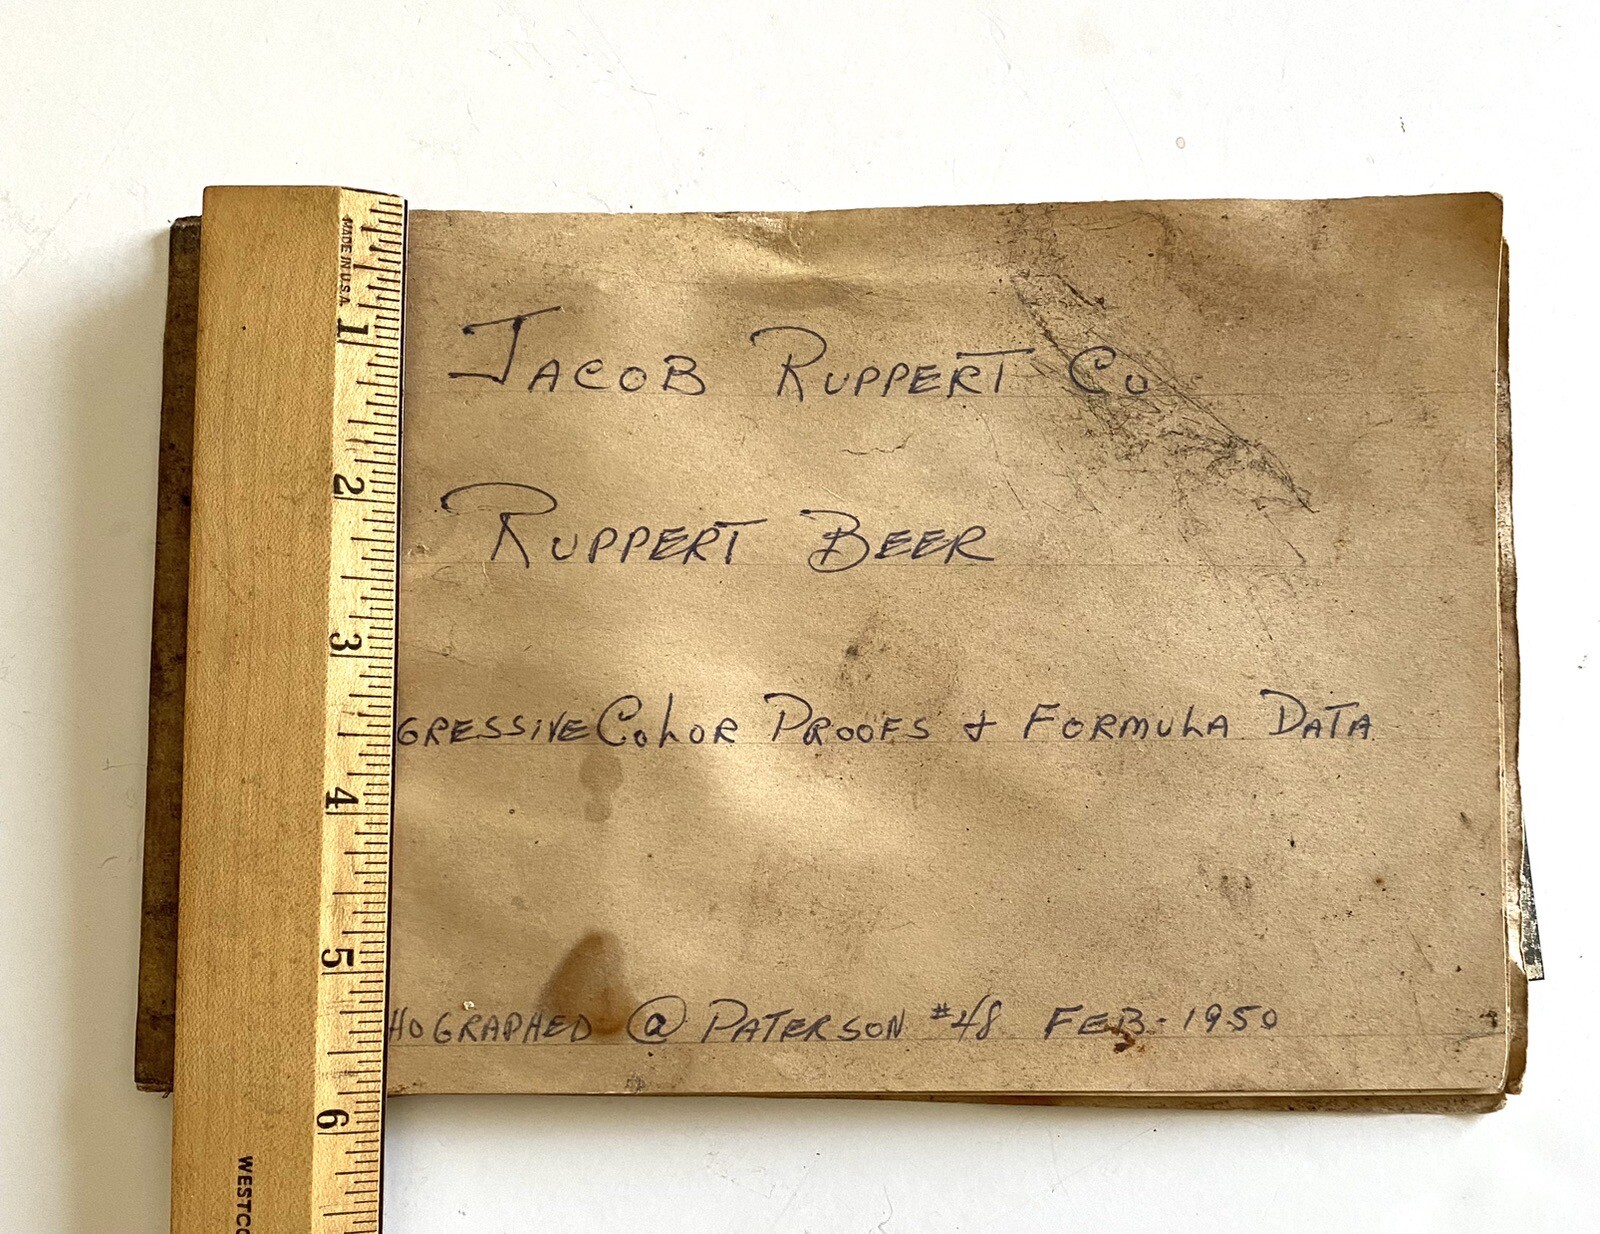 JACOB RUPPERT CO
RUPPERT BEER
GRESSIVE COLOR PROOFS & FORMULA DATA
HOGRAPHED @ PATERSON #48 FEB-1950
MADE IN U.S.A.
1
2
3
4
5
6
WESTCO